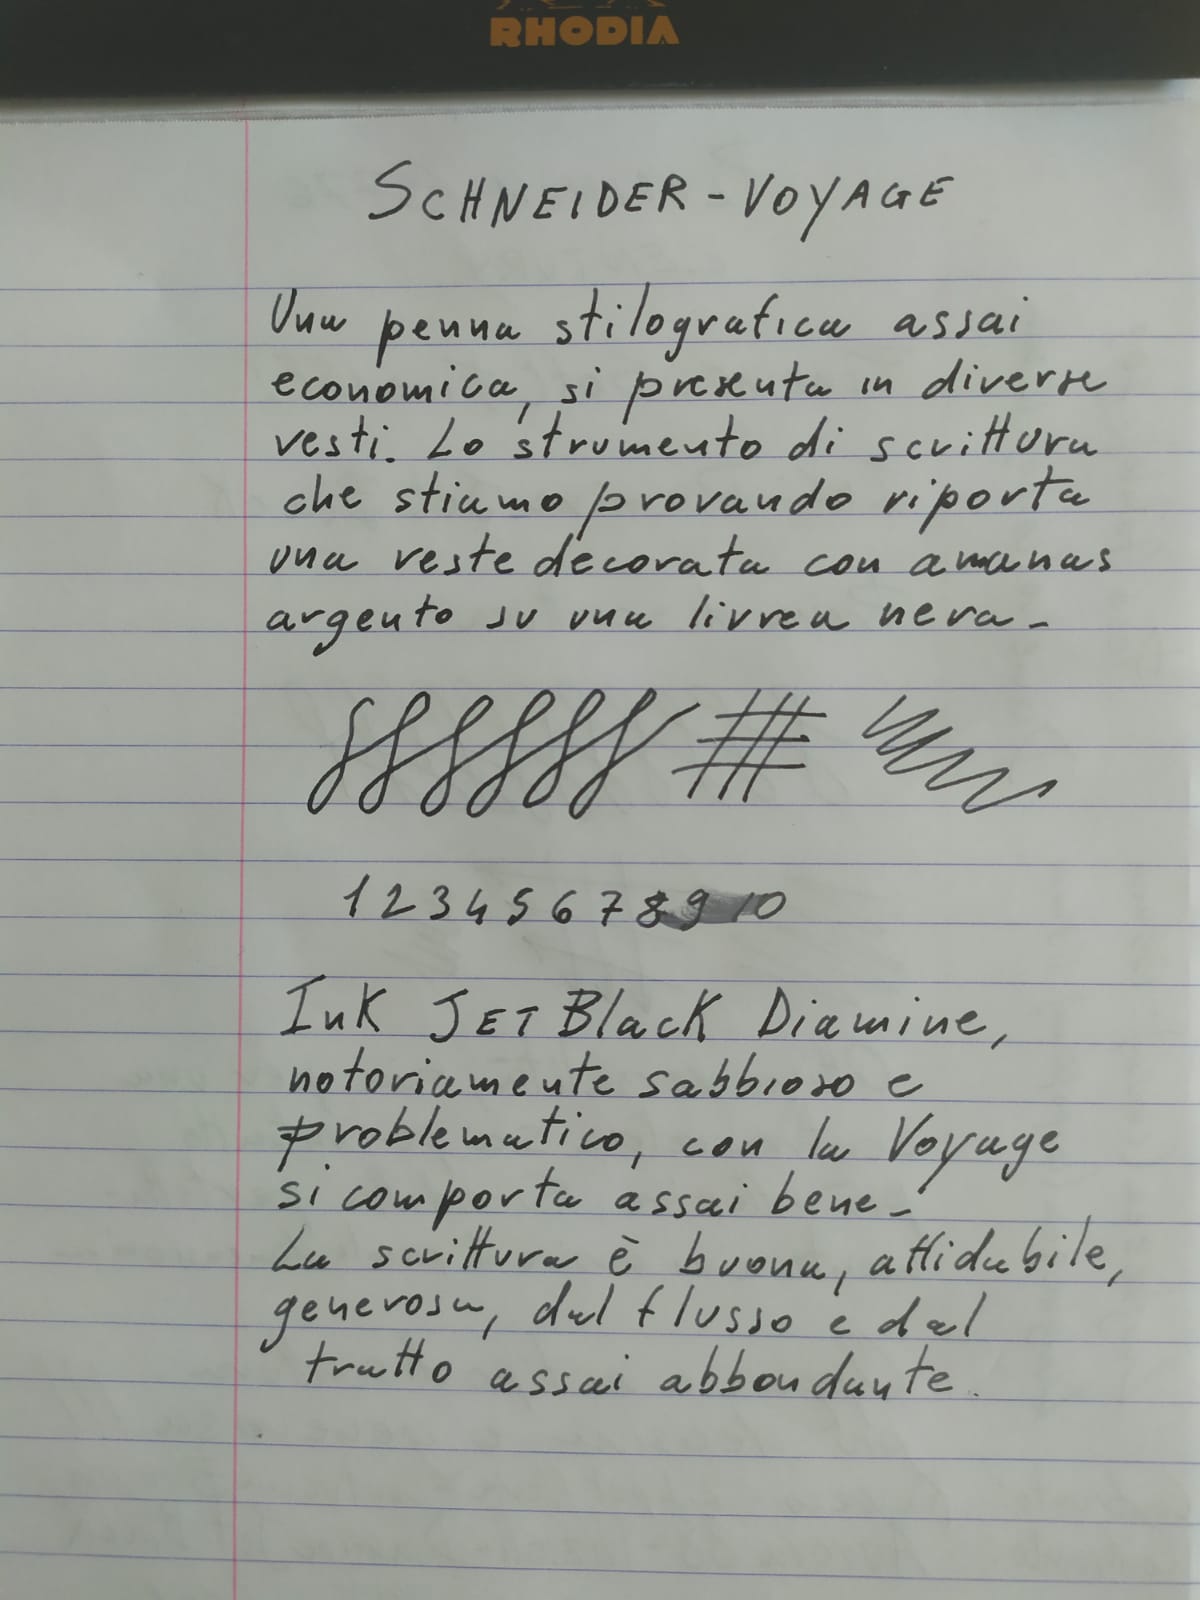 RHODIA
SCHNEIDER - VOYAGE
Una penna stilografica assai
economica, si presenta in diverse
vesti. Lo strumento di scrittura
che stiamo provando riporta
una veste decorata con amanas
argento su una livrea nera -
1 2 3 4 5 6 7 8 9 10
Ink JET Black Diamine,
notoriamente sabbioso e
problematico, con la Voyage
si comporta assai bene -
La scrittura è buona, affidabile,
generosa, dal flusso e dal
tratto assai abbondante.